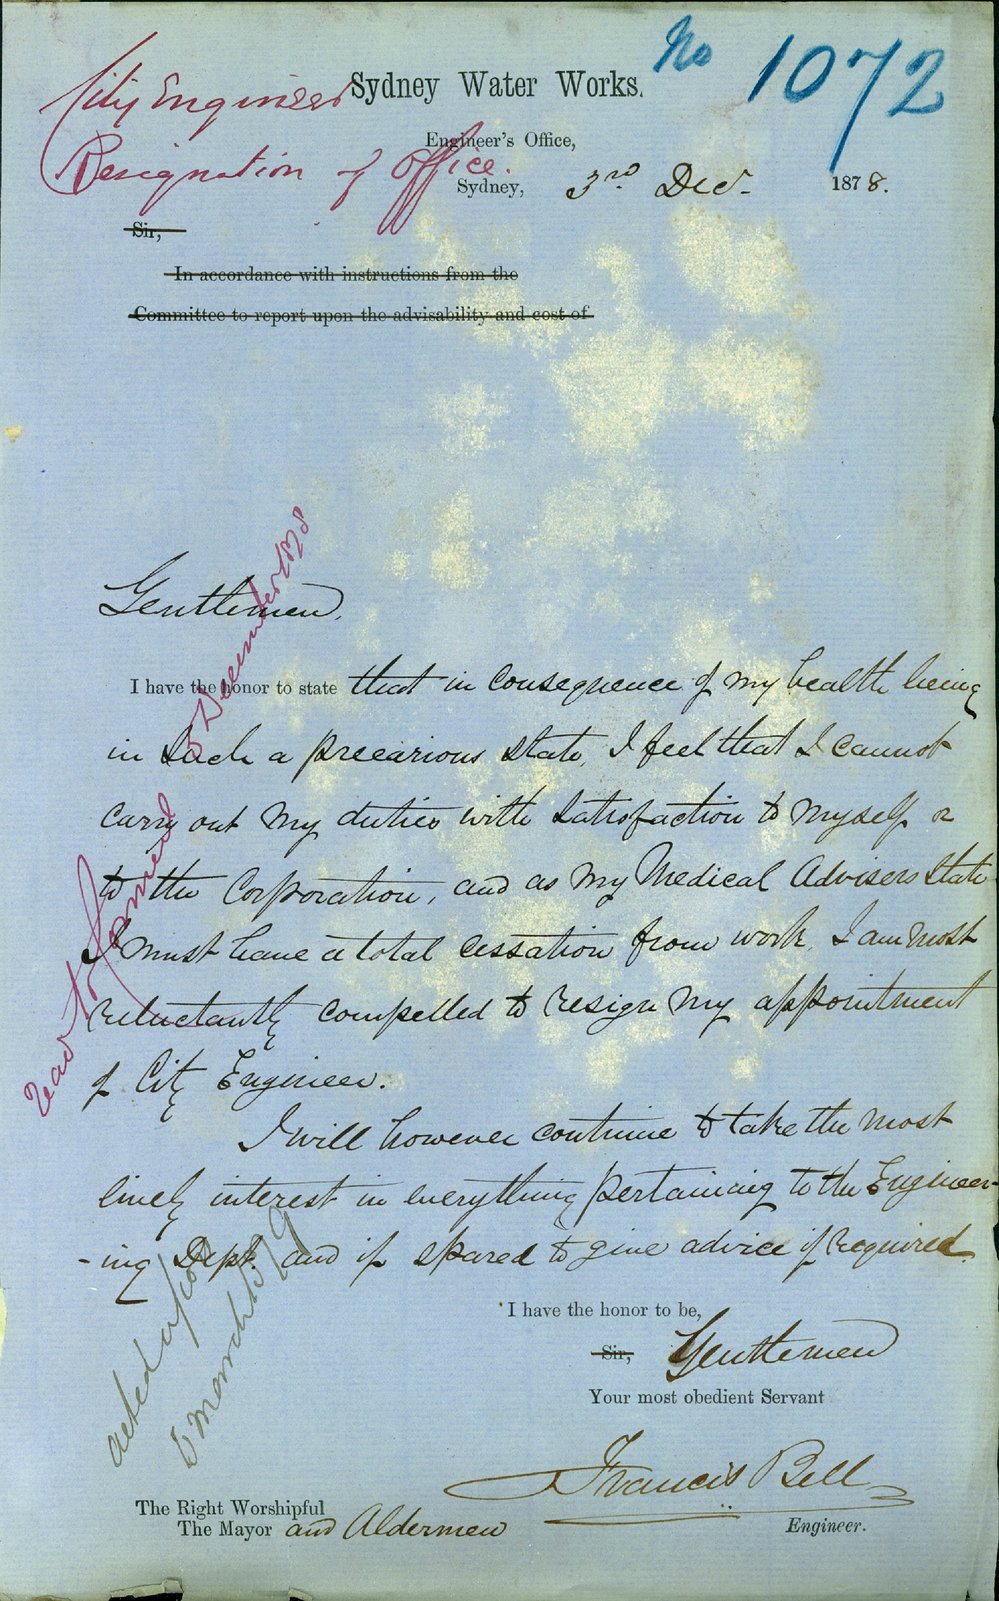 No 1072
City Engineer
Resignation of Office.
Sydney Water Works.
Engineer's Office,
Sydney, 3rd Decr. 1878.
Sir,
In accordance with instructions from the
Committee to report upon the advisability and cost of
Gentlemen,
I have the honor to state that in consequence of my health being
in such a precarious state, I feel that I cannot
carry out my duties with satisfaction to myself or
to the Corporation, and as my Medical Advisers state
I must have a total cessation from work, I am most
reluctantly compelled to resign my appointment
of City Engineer.
I will however continue to take the most
lively interest in everything pertaining to the Engineer-
-ing Dept. and if spared to give advice if required.
I have the honor to be,
Sir, Gentlemen
Your most obedient Servant
Francis Bell
Engineer.
The Right Worshipful
The Mayor and Aldermen
5 December 1878
acted upon
6 March 1879